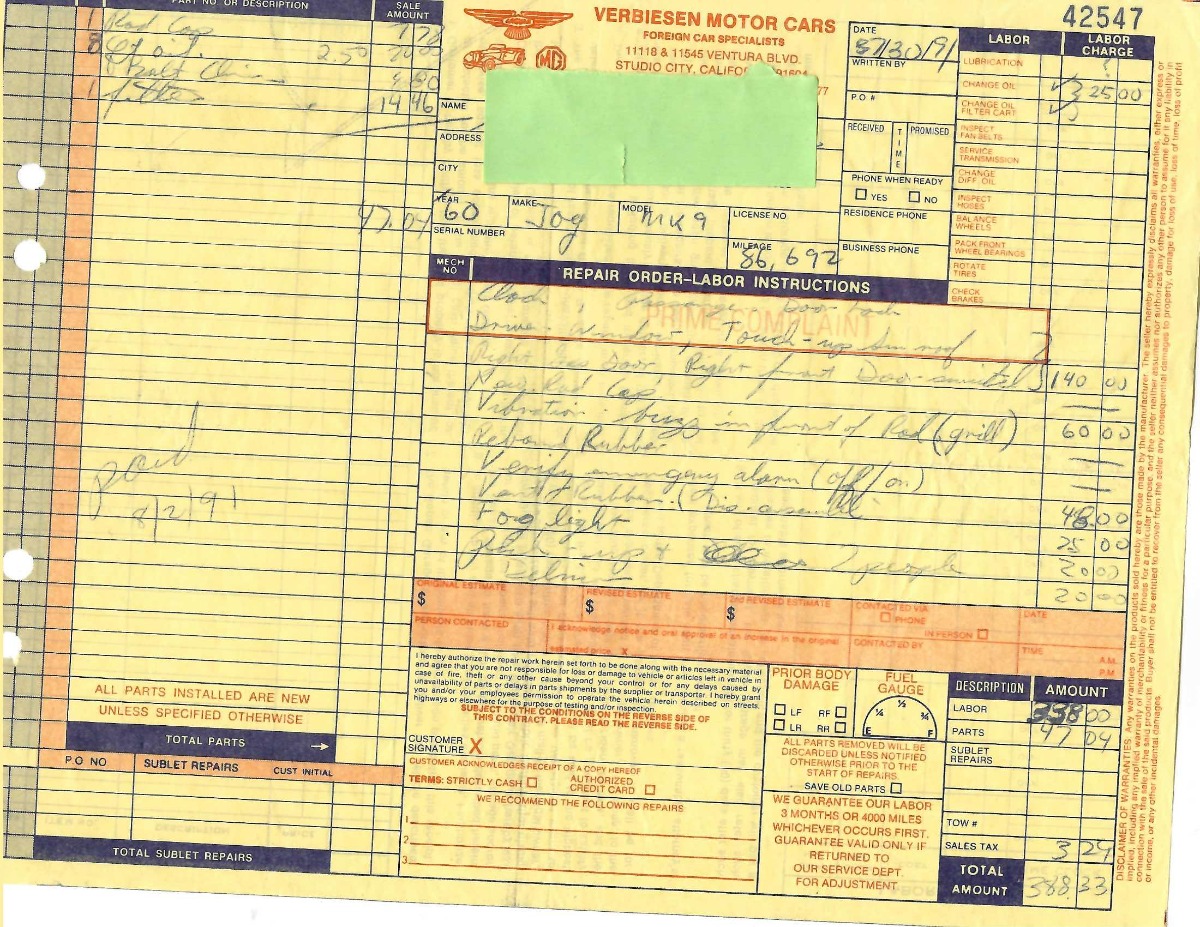 PART NO. OR DESCRIPTION
SALE AMOUNT
Rad Cap 7.78
8 Qt oil 2.50 20.00
4.80
1 filter 14.46
47.04
paid
8/2/91
ALL PARTS INSTALLED ARE NEW
UNLESS SPECIFIED OTHERWISE
TOTAL PARTS →
P O NO SUBLET REPAIRS CUST INITIAL
TOTAL SUBLET REPAIRS
VERBIESEN MOTOR CARS
FOREIGN CAR SPECIALISTS
11118 & 11545 VENTURA BLVD.
STUDIO CITY, 91604
MG
77
42547
NAME
ADDRESS
CITY
DATE
/30/91
WRITTEN BY
P O #
RECEIVED TIME PROMISED
PHONE WHEN READY
YES NO
RESIDENCE PHONE
BUSINESS PHONE
YEAR 60 MAKE Jag MODEL MK9 LICENSE NO
SERIAL NUMBER
MILEAGE 86,692
LABOR LABOR CHARGE
LUBRICATION
CHANGE OIL 25 00
CHANGE OIL FILTER CART
INSPECT FAN BELTS
SERVICE TRANSMISSION
CHANGE DIFF. OIL
INSPECT HOSES
BALANCE WHEELS
PACK FRONT WHEEL BEARINGS
ROTATE TIRES
CHECK BRAKES
MECH NO
REPAIR ORDER–LABOR INSTRUCTIONS
PRIME COMPLAINT
Door
Driver Window, Touch-up Sun roof
Right Door Right front Door 140 00
New Rad Cap
Vibration - buzz in front of Rad (grill) 60 00
Rubber
Verify emergency alarm (off/on)
Vent Rubber 48.00
Fog light 25 00
Pick-up + 2 people 20 00
20 00
ORIGINAL ESTIMATE
$
REVISED ESTIMATE
$
2nd REVISED ESTIMATE
$
CONTACTED VIA
PHONE
IN PERSON
DATE
PERSON CONTACTED
I acknowledge notice and oral approval of an increase in the original
estimated price. X
CONTACTED BY
TIME
A.M.
P.M.
I hereby authorize the repair work herein set forth to be done along with the necessary material
and agree that you are not responsible for loss or damage to vehicle or articles left in vehicle in
case of fire, theft or any other cause beyond your control or for any delays caused by
unavailability of parts or delays in parts shipments by the supplier or transporter. I hereby grant
you and/or your employees permission to operate the vehicle herein described on streets,
highways or elsewhere for the purpose of testing and/or inspection.
SUBJECT TO THE CONDITIONS ON THE REVERSE SIDE OF
THIS CONTRACT. PLEASE READ THE REVERSE SIDE.
CUSTOMER
SIGNATURE X
CUSTOMER ACKNOWLEDGES RECEIPT OF A COPY HEREOF
TERMS: STRICTLY CASH AUTHORIZED CREDIT CARD
WE RECOMMEND THE FOLLOWING REPAIRS
1
2
3
PRIOR BODY DAMAGE
LF RF
LR RR
FUEL GAUGE
E ¼ ½ ¾ F
ALL PARTS REMOVED WILL BE
DISCARDED UNLESS NOTIFIED
OTHERWISE PRIOR TO THE
START OF REPAIRS.
SAVE OLD PARTS
WE GUARANTEE OUR LABOR
3 MONTHS OR 4000 MILES
WHICHEVER OCCURS FIRST.
GUARANTEE VALID ONLY IF
RETURNED TO
OUR SERVICE DEPT.
FOR ADJUSTMENT
DESCRIPTION AMOUNT
LABOR 338 00
PARTS 47 04
SUBLET REPAIRS
TOW #
SALES TAX 3 29
TOTAL AMOUNT 388.33
DISCLAIMER OF WARRANTIES: Any warranties on the products sold hereby are those made by the manufacturer. The seller hereby expressly disclaims all warranties, either express or
implied, including any implied warranty of merchantability or fitness for a particular purpose, and the seller neither assumes nor authorizes any other person to assume for it any liability in
connection with the sale of the said products. Buyer shall not be entitled to recover from the seller any consequential damages, damages to property, damage for loss of use, loss of time, loss of profit
or income, or any other incidental damages.